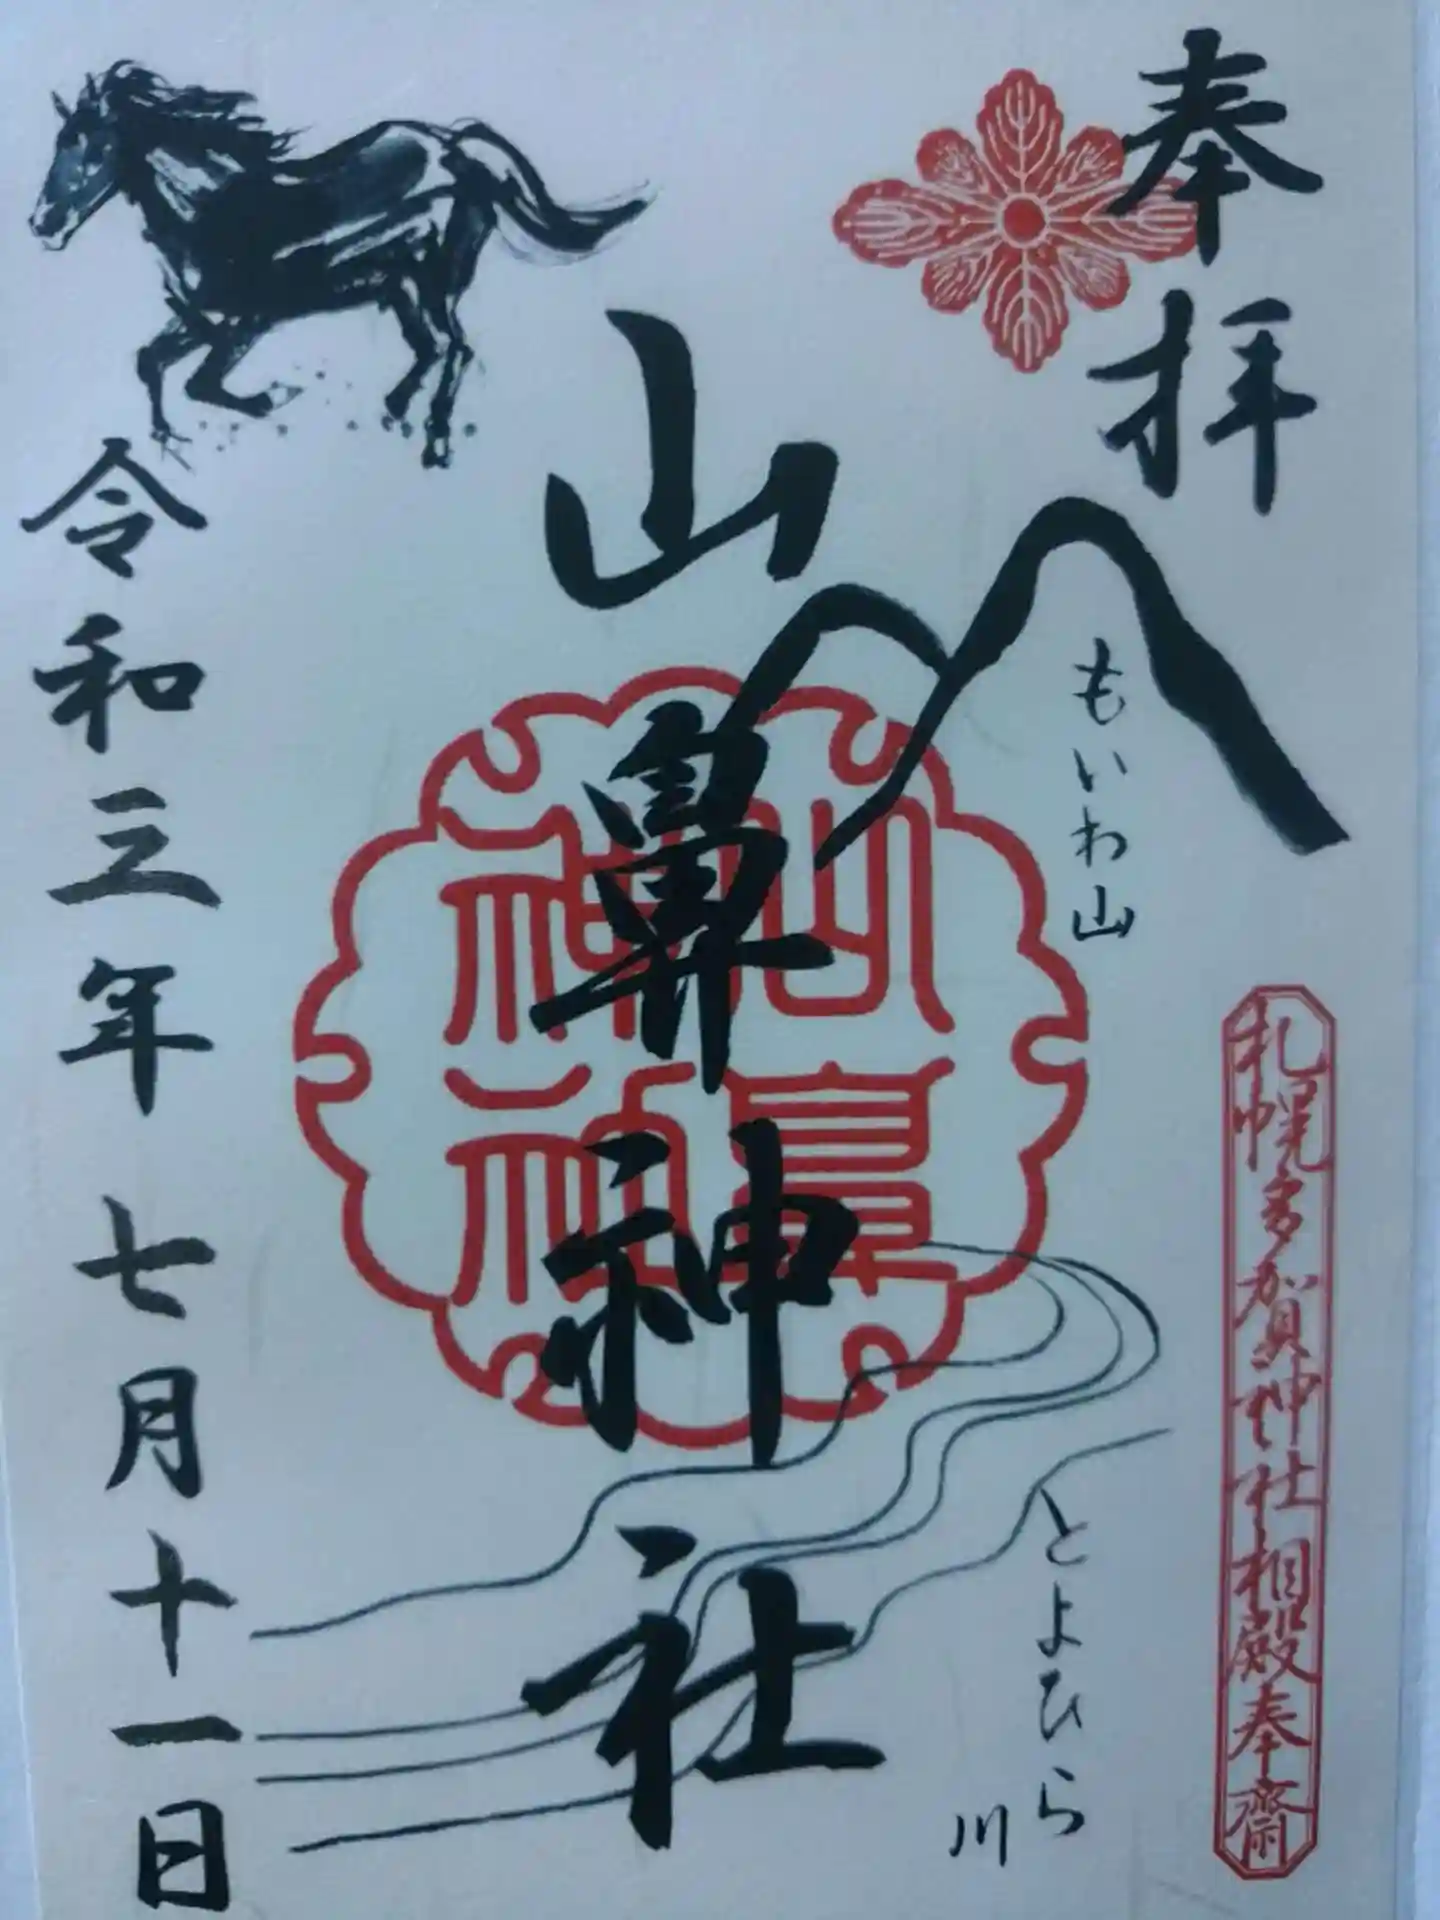 奉拝
もいわ山
札幌多賀神社相殿奉齋
とよひら
川
山鼻神社
山鼻
神社
令和三年七月十一日